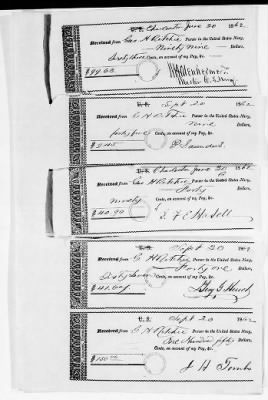 Charleston June 20 1862
Received from Geo H Ritchie Purser in the United States Navy,
Ninety Nine Dollars,
Sixty three Cents, on account of my Pay, &c.
$99.63
Sept 20 1862
Received from G H Ritchie Purser in the United States Navy,
Nine Dollars,
forty five Cents, on account of my Pay, &c.
$9.45 P Saunders
Charleston June 20
Received from Geo H Ritchie Purser in the United States Navy,
Forty Dollars,
Ninety Cents, on account of my Pay, &c.
$40.90
Sept 20
Received from G H Ritchie Purser in the United States Navy,
Forty one Dollars,
Sixty Cents, on account of my Pay, &c.
Sept 20 1862
Received from G H Ritchie Purser in the United States Navy,
One Hundred fifty Dollars,
Cents, on account of my Pay, &c.
$150
J H Tombs